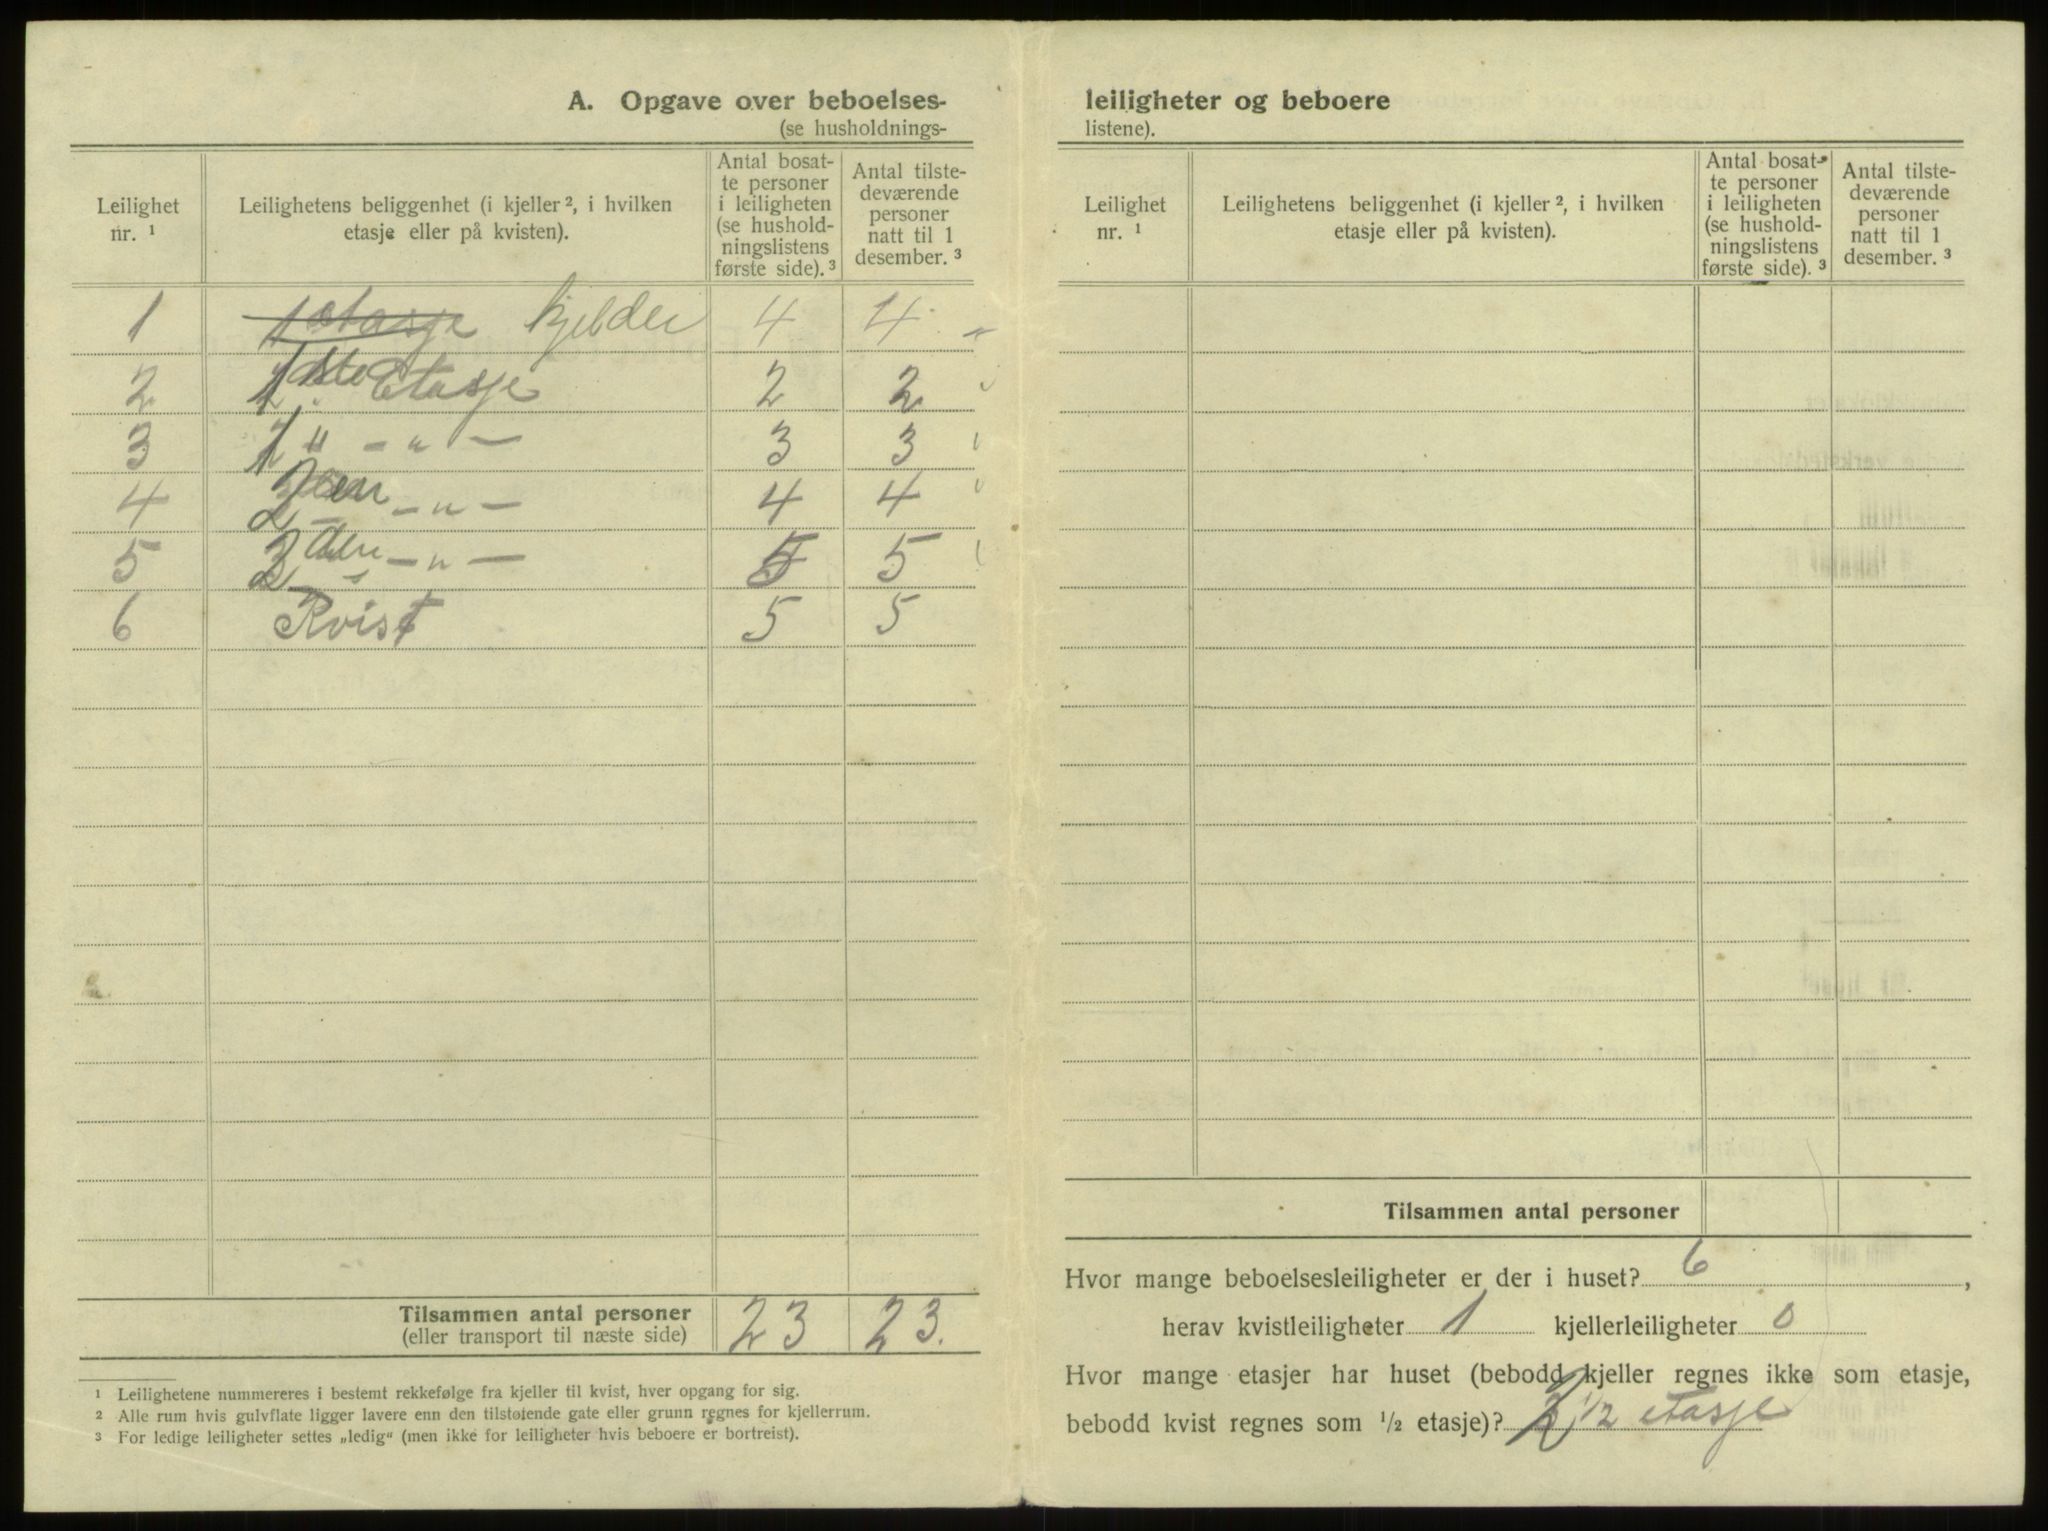 A. Opgave over beboelses-
(se husholdnings-
Leilighet nr. ¹
Leilighetens beliggenhet (i kjeller ², i hvilken etasje eller på kvisten).
Antal bosatte personer i leiligheten (se husholdningslistens første side). ³
Antal tilstedeværende personer natt til 1 desember. ³
1 1 etasje kjelder 4 4
2 1ste Etasje 2 2
3 1 " - " - 3 3
4 2den - " - 4 4
5 2den - " - 5 5
6 Kvist 5 5
Tilsammen antal personer 23 23.
(eller transport til næste side)
¹ Leilighetene nummereres i bestemt rekkefølge fra kjeller til kvist, hver opgang for sig.
² Alle rum hvis gulvflate ligger lavere enn den tilstøtende gate eller grunn regnes for kjellerrum.
³ For ledige leiligheter settes „ledig“ (men ikke for leiligheter hvis beboere er bortreist).
leiligheter og beboere
listene).
Leilighet nr. ¹
Leilighetens beliggenhet (i kjeller ², i hvilken etasje eller på kvisten).
Antal bosatte personer i leiligheten (se husholdningslistens første side). ³
Antal tilstedeværende personer natt til 1 desember. ³
Tilsammen antal personer
Hvor mange beboelsesleiligheter er der i huset? 6,
herav kvistleiligheter 1 kjellerleiligheter 0
Hvor mange etasjer har huset (bebodd kjeller regnes ikke som etasje,
bebodd kvist regnes som 1/2 etasje)? 2 1/2 etasje